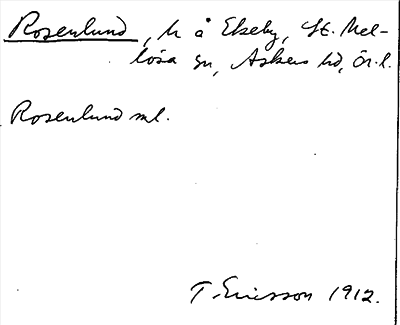 Rosenlund, h å Ekeby, St. Mel-
lösa sn, Askers hd, Ör. l.
Rosenlund ml.
T. Ericsson 1912.